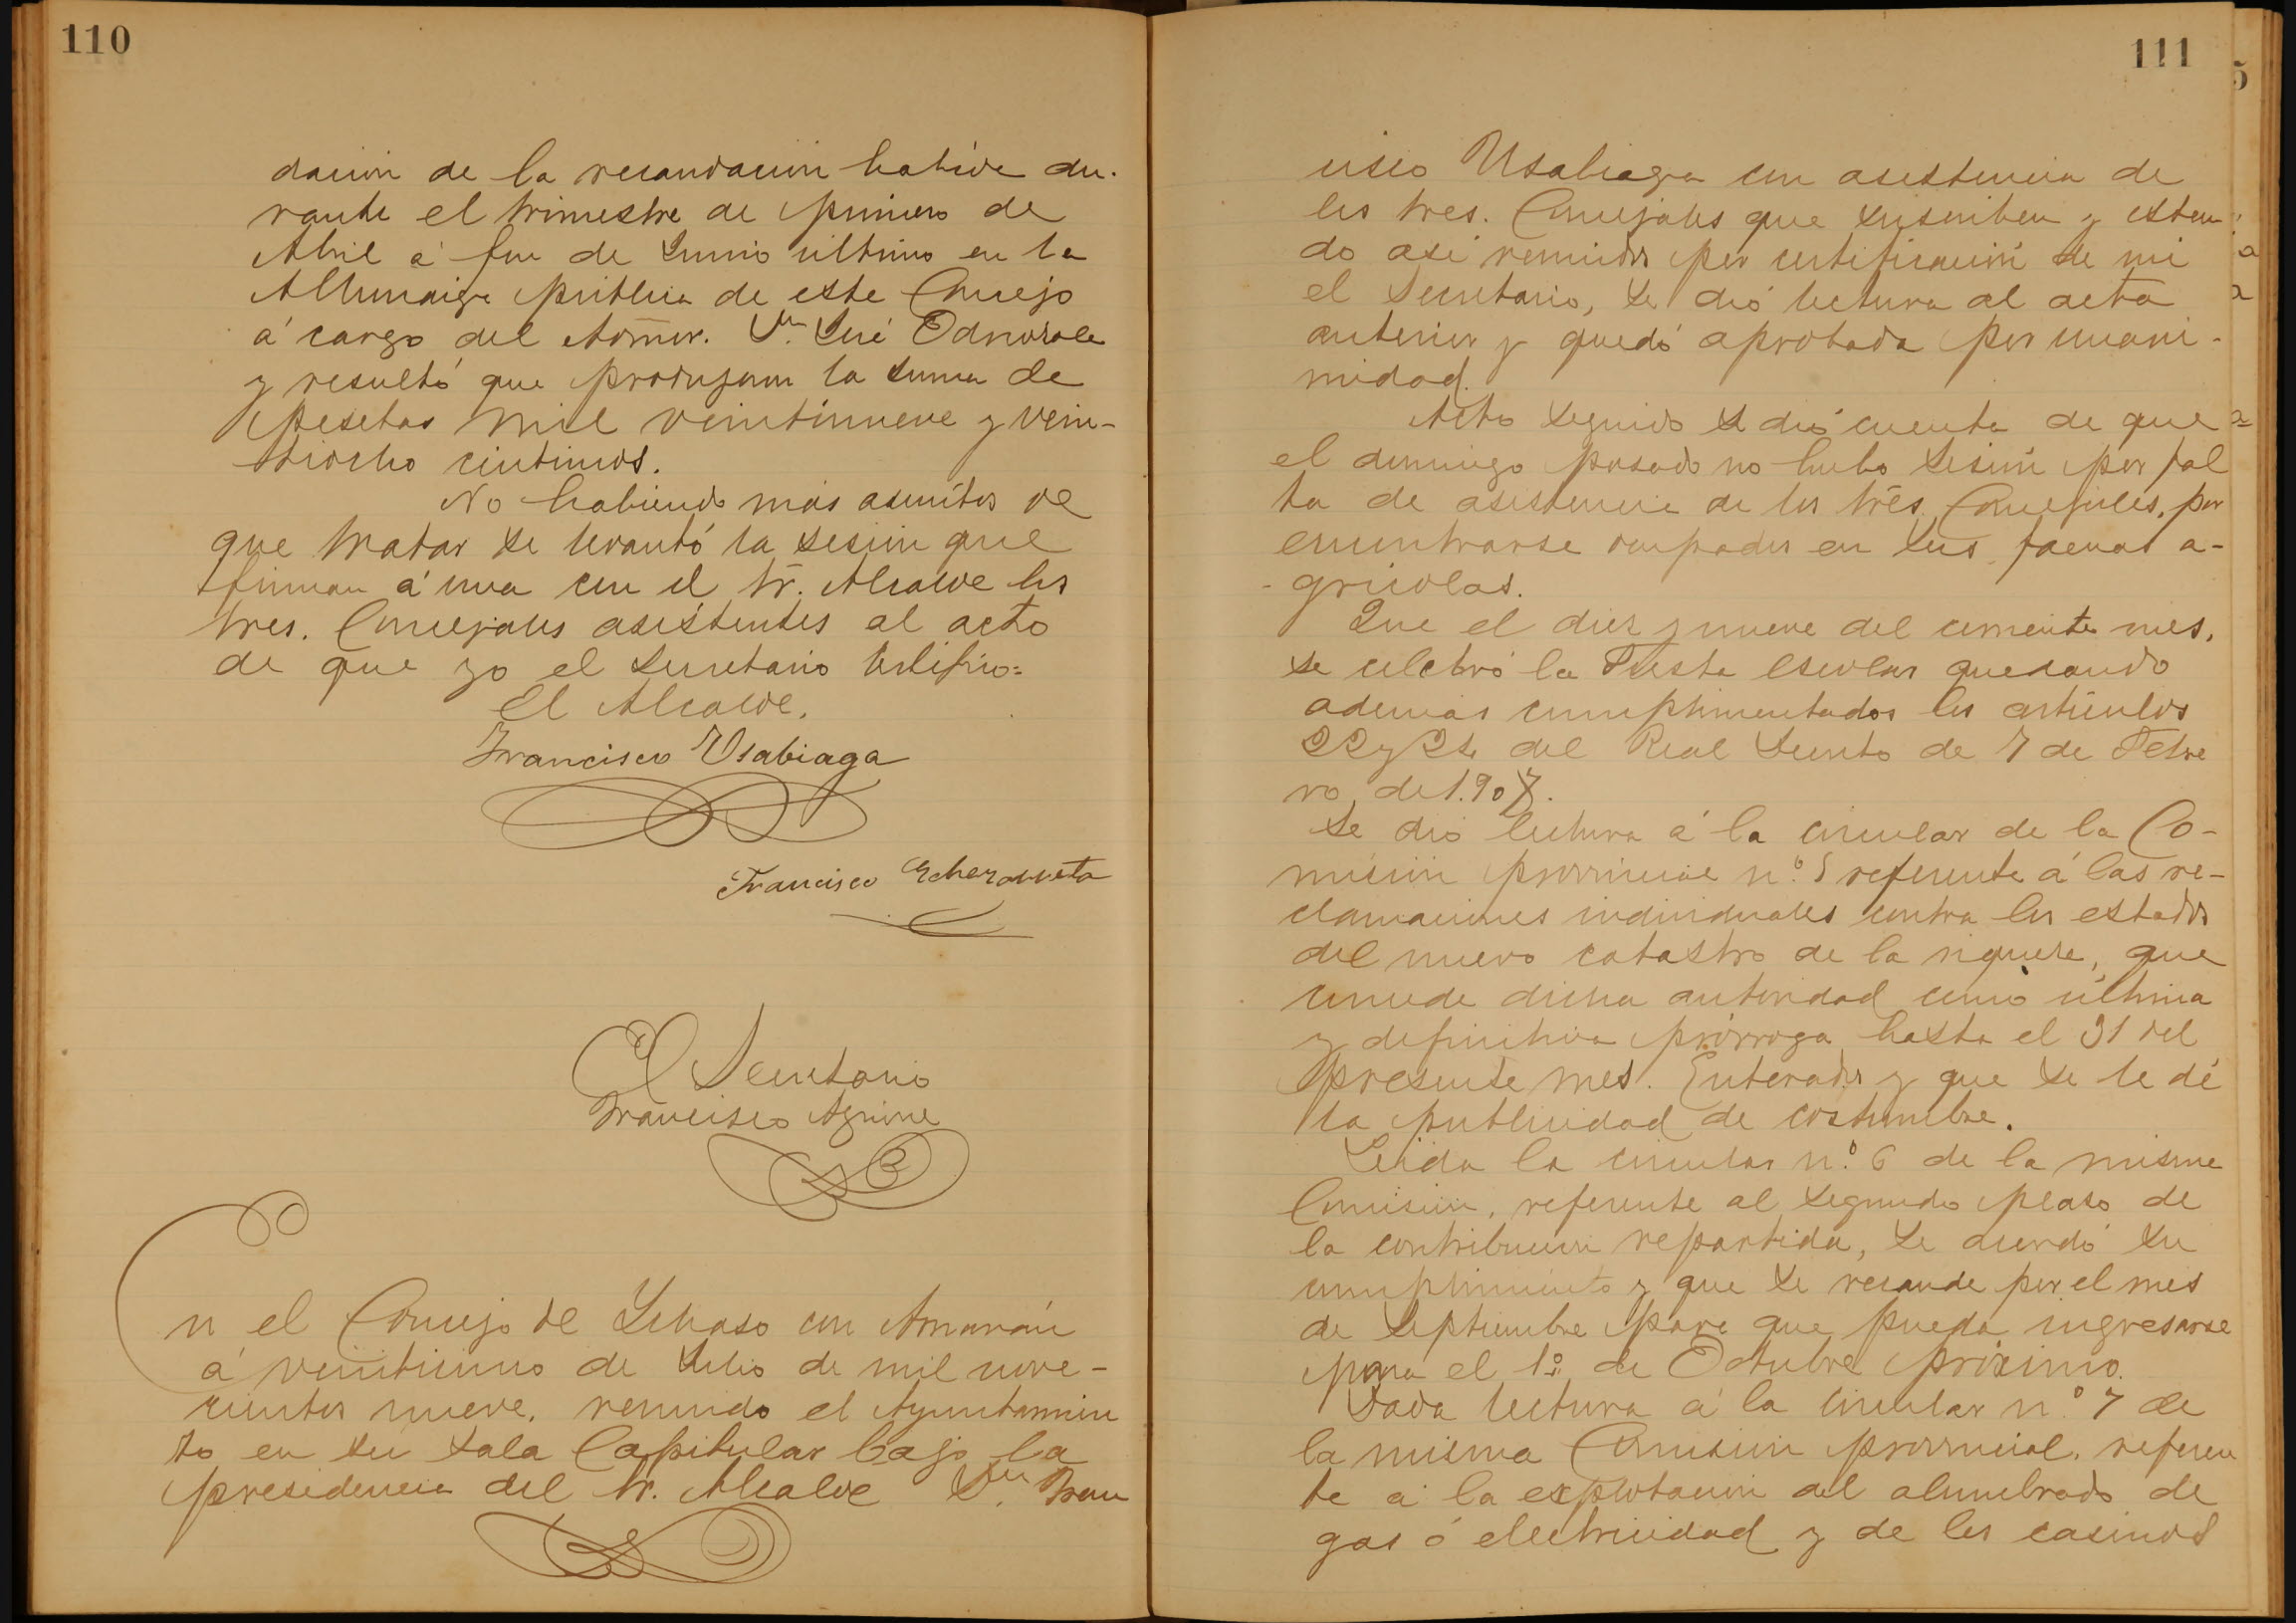 110
dación de la recaudación habida du-
rante el trimestre de primero de
Abril á fin de Junio último en la
Alhóndiga pública de este Concejo
á cargo del Admor. Dn. José Odriozola
y resultó que produjeron la suma de
pesetas mil veintinueve y vein-
tiocho céntimos.
No habiendo más asuntos de
que tratar se levantó la sesión que
firman á una con el Sr. Alcalde los
tres. Concejales asistentes al acto
de que yo el Secretario certifico=
El Alcalde,
Francisco Usabiaga
Francisco Echezarreta
El Secretario
Francisco Aguirre
En el Concejo de Lehaso con Amaróz
á veinticinco de Julio de mil nove-
cientos nueve, reunido el Ayuntamien
to en su Sala Capitular bajo la
presidencia del Sr. Alcalde Dn. Fran
111
cisco Usabiaga con asistencia de
los tres. Concejales que suscriben y estan
do así reunidos por certificación de mi
el Secretario, se dió lectura al acta
anterior y quedó aprobada por unani-
midad.
Acto seguido se dió cuenta de que
el domingo pasado no hubo sesión por fal
ta de asistencia de los tres. Concejales, por
encontrarse ocupados en sus faenas a-
-grícolas.
Que el diez y nueve del corriente mes,
se celebró la Fiesta escolar quedando
además cumplimentados los artículos
22 y 24 del Real Decreto de 7 de Febre
ro de 1.907.
Se dió lectura á la circular de la Co-
misión provincial n.º 5 referente á las re-
clamaciones individuales contra los estados
del nuevo catastro de la riqueza, que
concede dicha autoridad como última
y definitiva prórroga hasta el 31 del
presente mes. Enterados y que se le dé
la publicidad de costumbre.
Leida la circular n.º 6 de la misma
Comisión, referente al segundo plazo de
la contribución repartida, se acordó su
cumplimiento y que se recaude por el mes
de Septiembre para que pueda ingresarse
para el 1.º de Octubre próximo.
Dada lectura á la circular n.º 7 de
la misma Comisión provincial, referen
te á la explotación del alumbrado de
gas ó electricidad y de los casinos